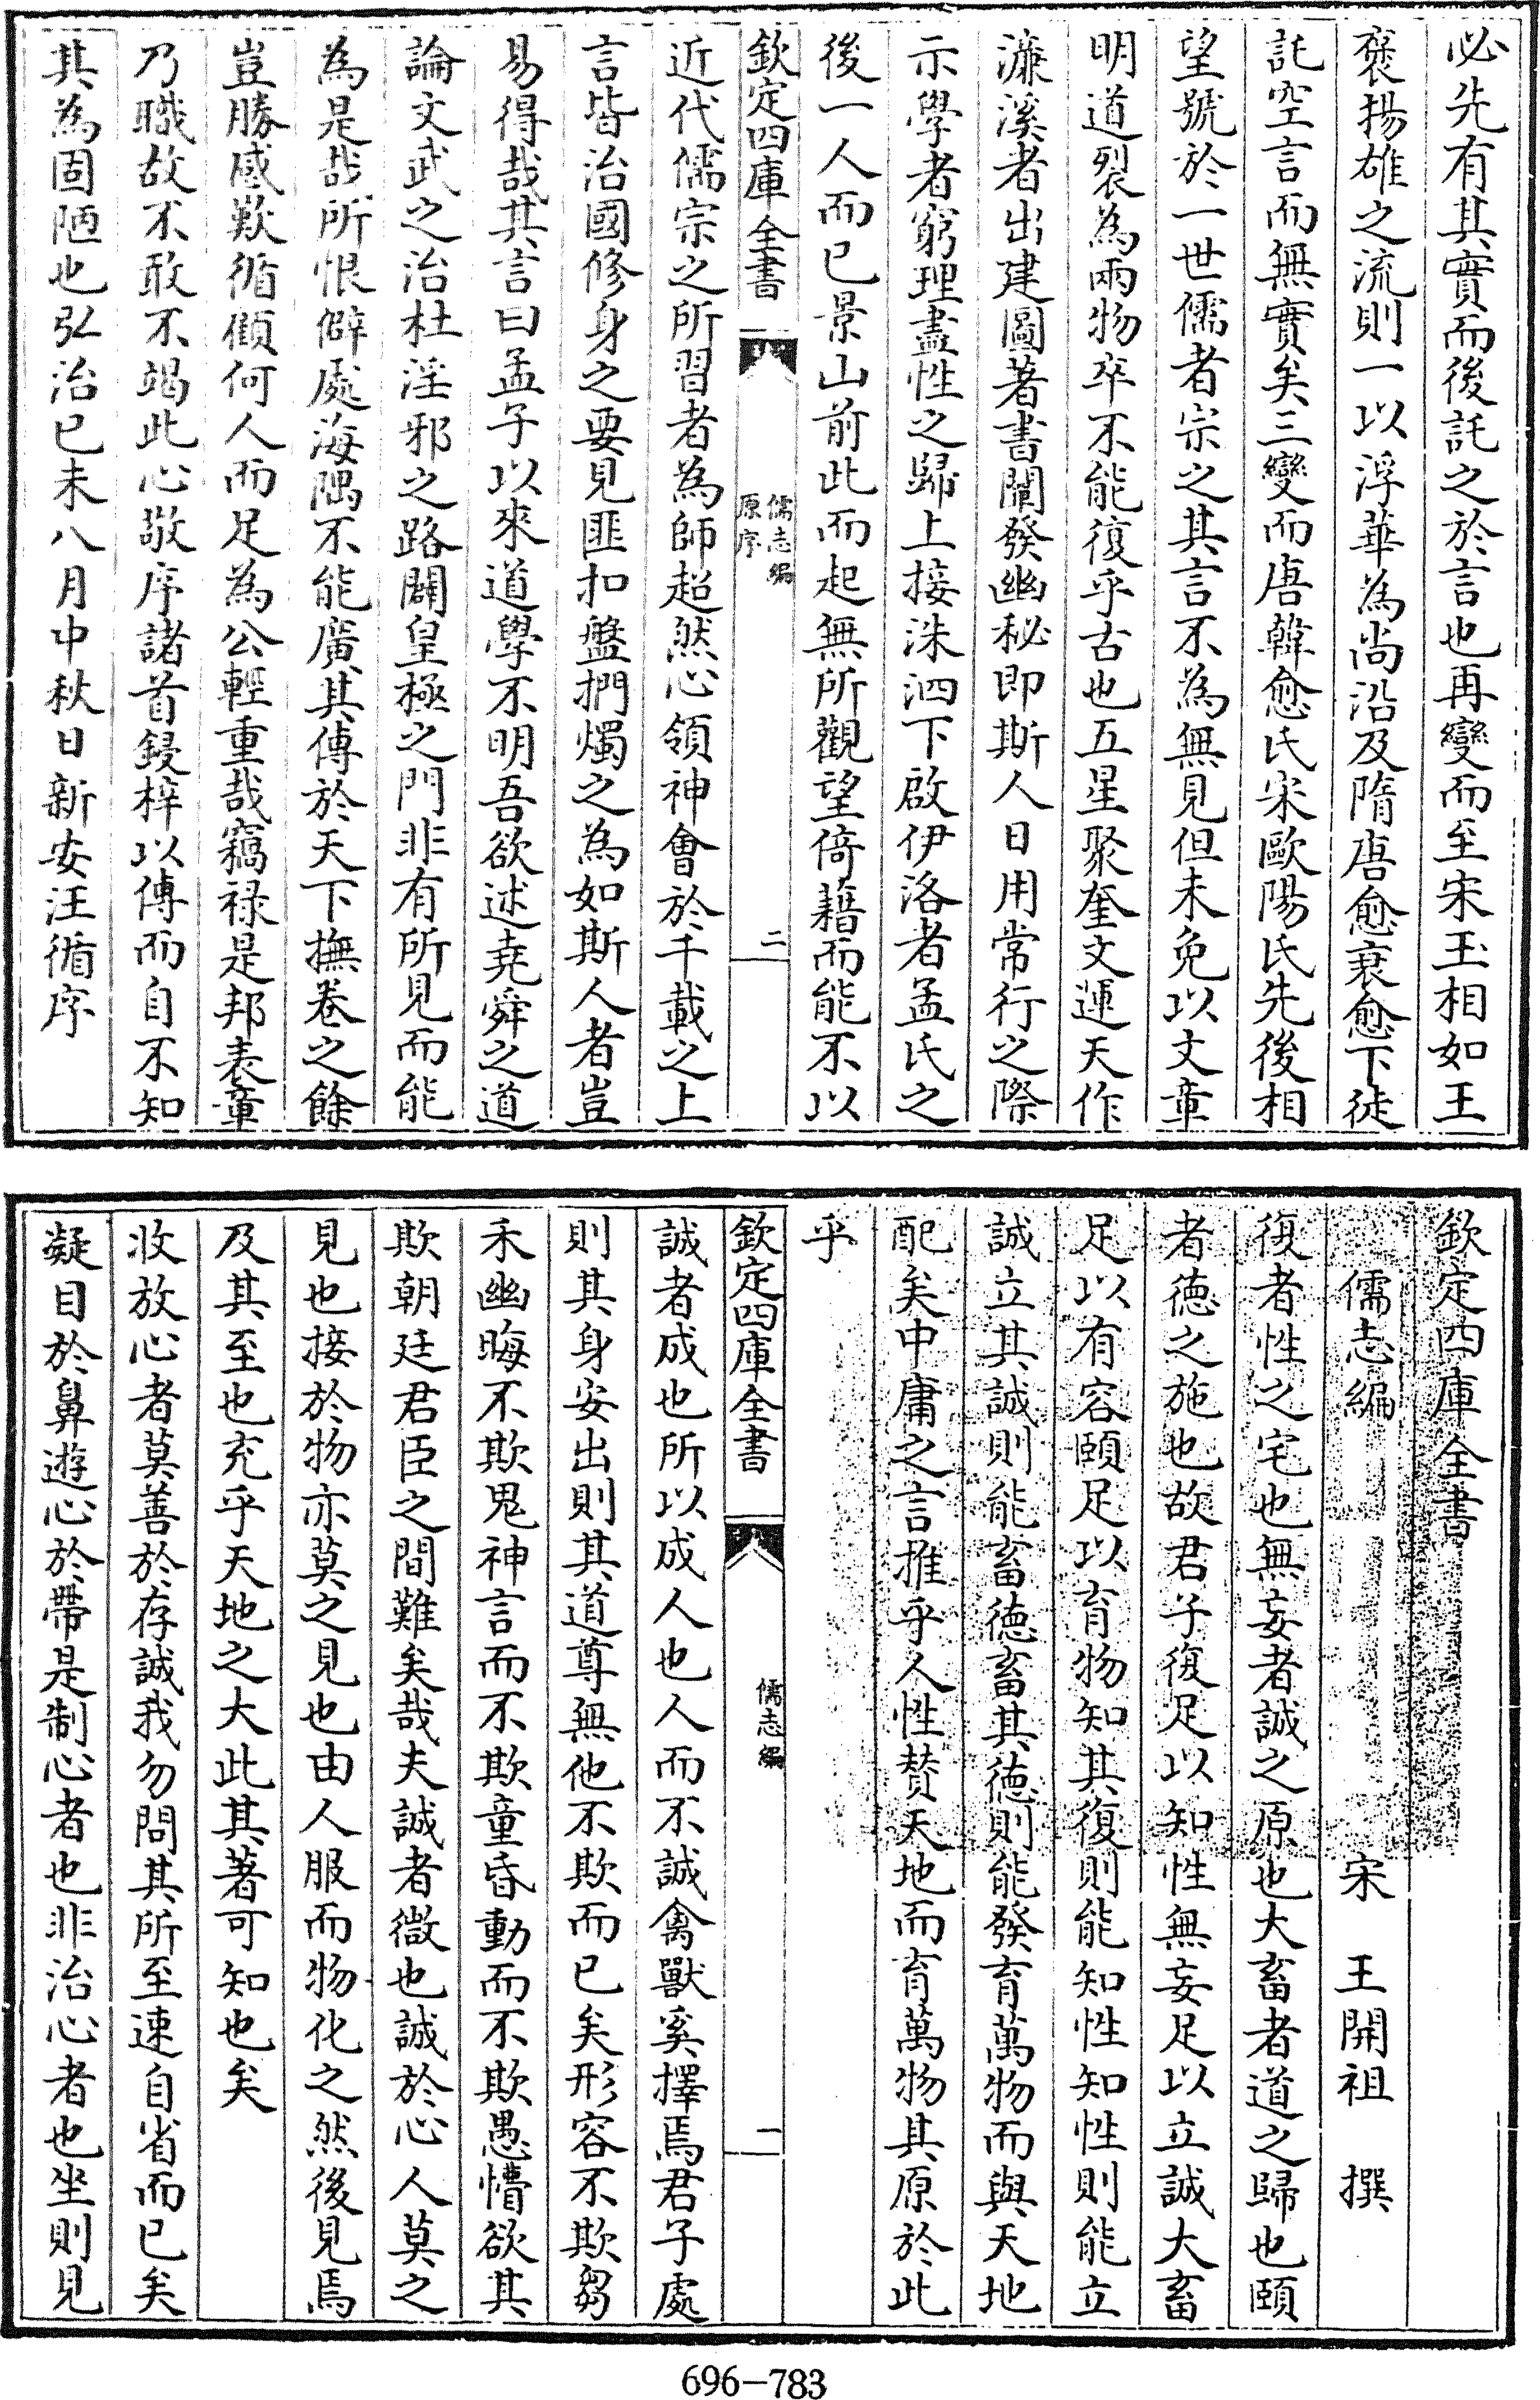 必先有其實而後託之於言也再變而至宋玉相如王
褒揚雄之流則一以浮華為尚沿及隋唐愈衰愈下徒
託空言而無實矣三變而唐韓愈氏宋歐陽氏先後相
望號於一世儒者宗之其言不為無見但未免以文章
明道裂為兩物卒不能復乎古也五星聚奎文運天作
濂溪者出建圖著書闡發幽秘即斯人日用常行之際
示學者窮理盡性之歸上接洙泗下啟伊洛者孟氏之
後一人而已景山前此而起無所觀望倚藉而能不以
欽定四庫全書 儒志編 原序 二
近代儒宗之所習者為師超然心領神會於千載之上
言皆治國修身之要見匪扣盤捫燭之為如斯人者豈
易得哉其言曰孟子以來道學不明吾欲述堯舜之道
論文武之治杜淫邪之路闢皇極之門非有所見而能
為是哉所恨僻處海隅不能廣其傳於天下撫卷之餘
豈勝感歎循顧何人而足為公輕重哉竊祿是邦表章
乃職故不敢不竭此心敬序諸首鋟梓以傳而自不知
其為固陋也弘治已未八月中秋日新安汪循序
欽定四庫全書
儒志編 宋 王開祖 撰
復者性之宅也無妄者誠之原也大畜者道之歸也頤
者德之施也故君子復足以知性無妄足以立誠大畜
足以有容頤足以育物知其復則能知性知性則能立
誠立其誠則能畜德畜其德則能發育萬物而與天地
配矣中庸之言推乎人性贊天地而育萬物其原於此
乎
欽定四庫全書 儒志編 一
誠者成也所以成人也人而不誠禽獸奚擇焉君子處
則其身安出則其道尊無他不欺而已矣形容不欺芻
禾幽晦不欺鬼神言而不欺童昏動而不欺愚懵欲其
欺朝廷君臣之間難矣哉夫誠者微也誠於心人莫之
見也接於物亦莫之見也由人服而物化之然後見焉
及其至也充乎天地之大此其著可知也矣
收放心者莫善於存誠我勿問其所至速自省而已矣
凝目於鼻遊心於帶是制心者也非治心者也坐則見
696-783